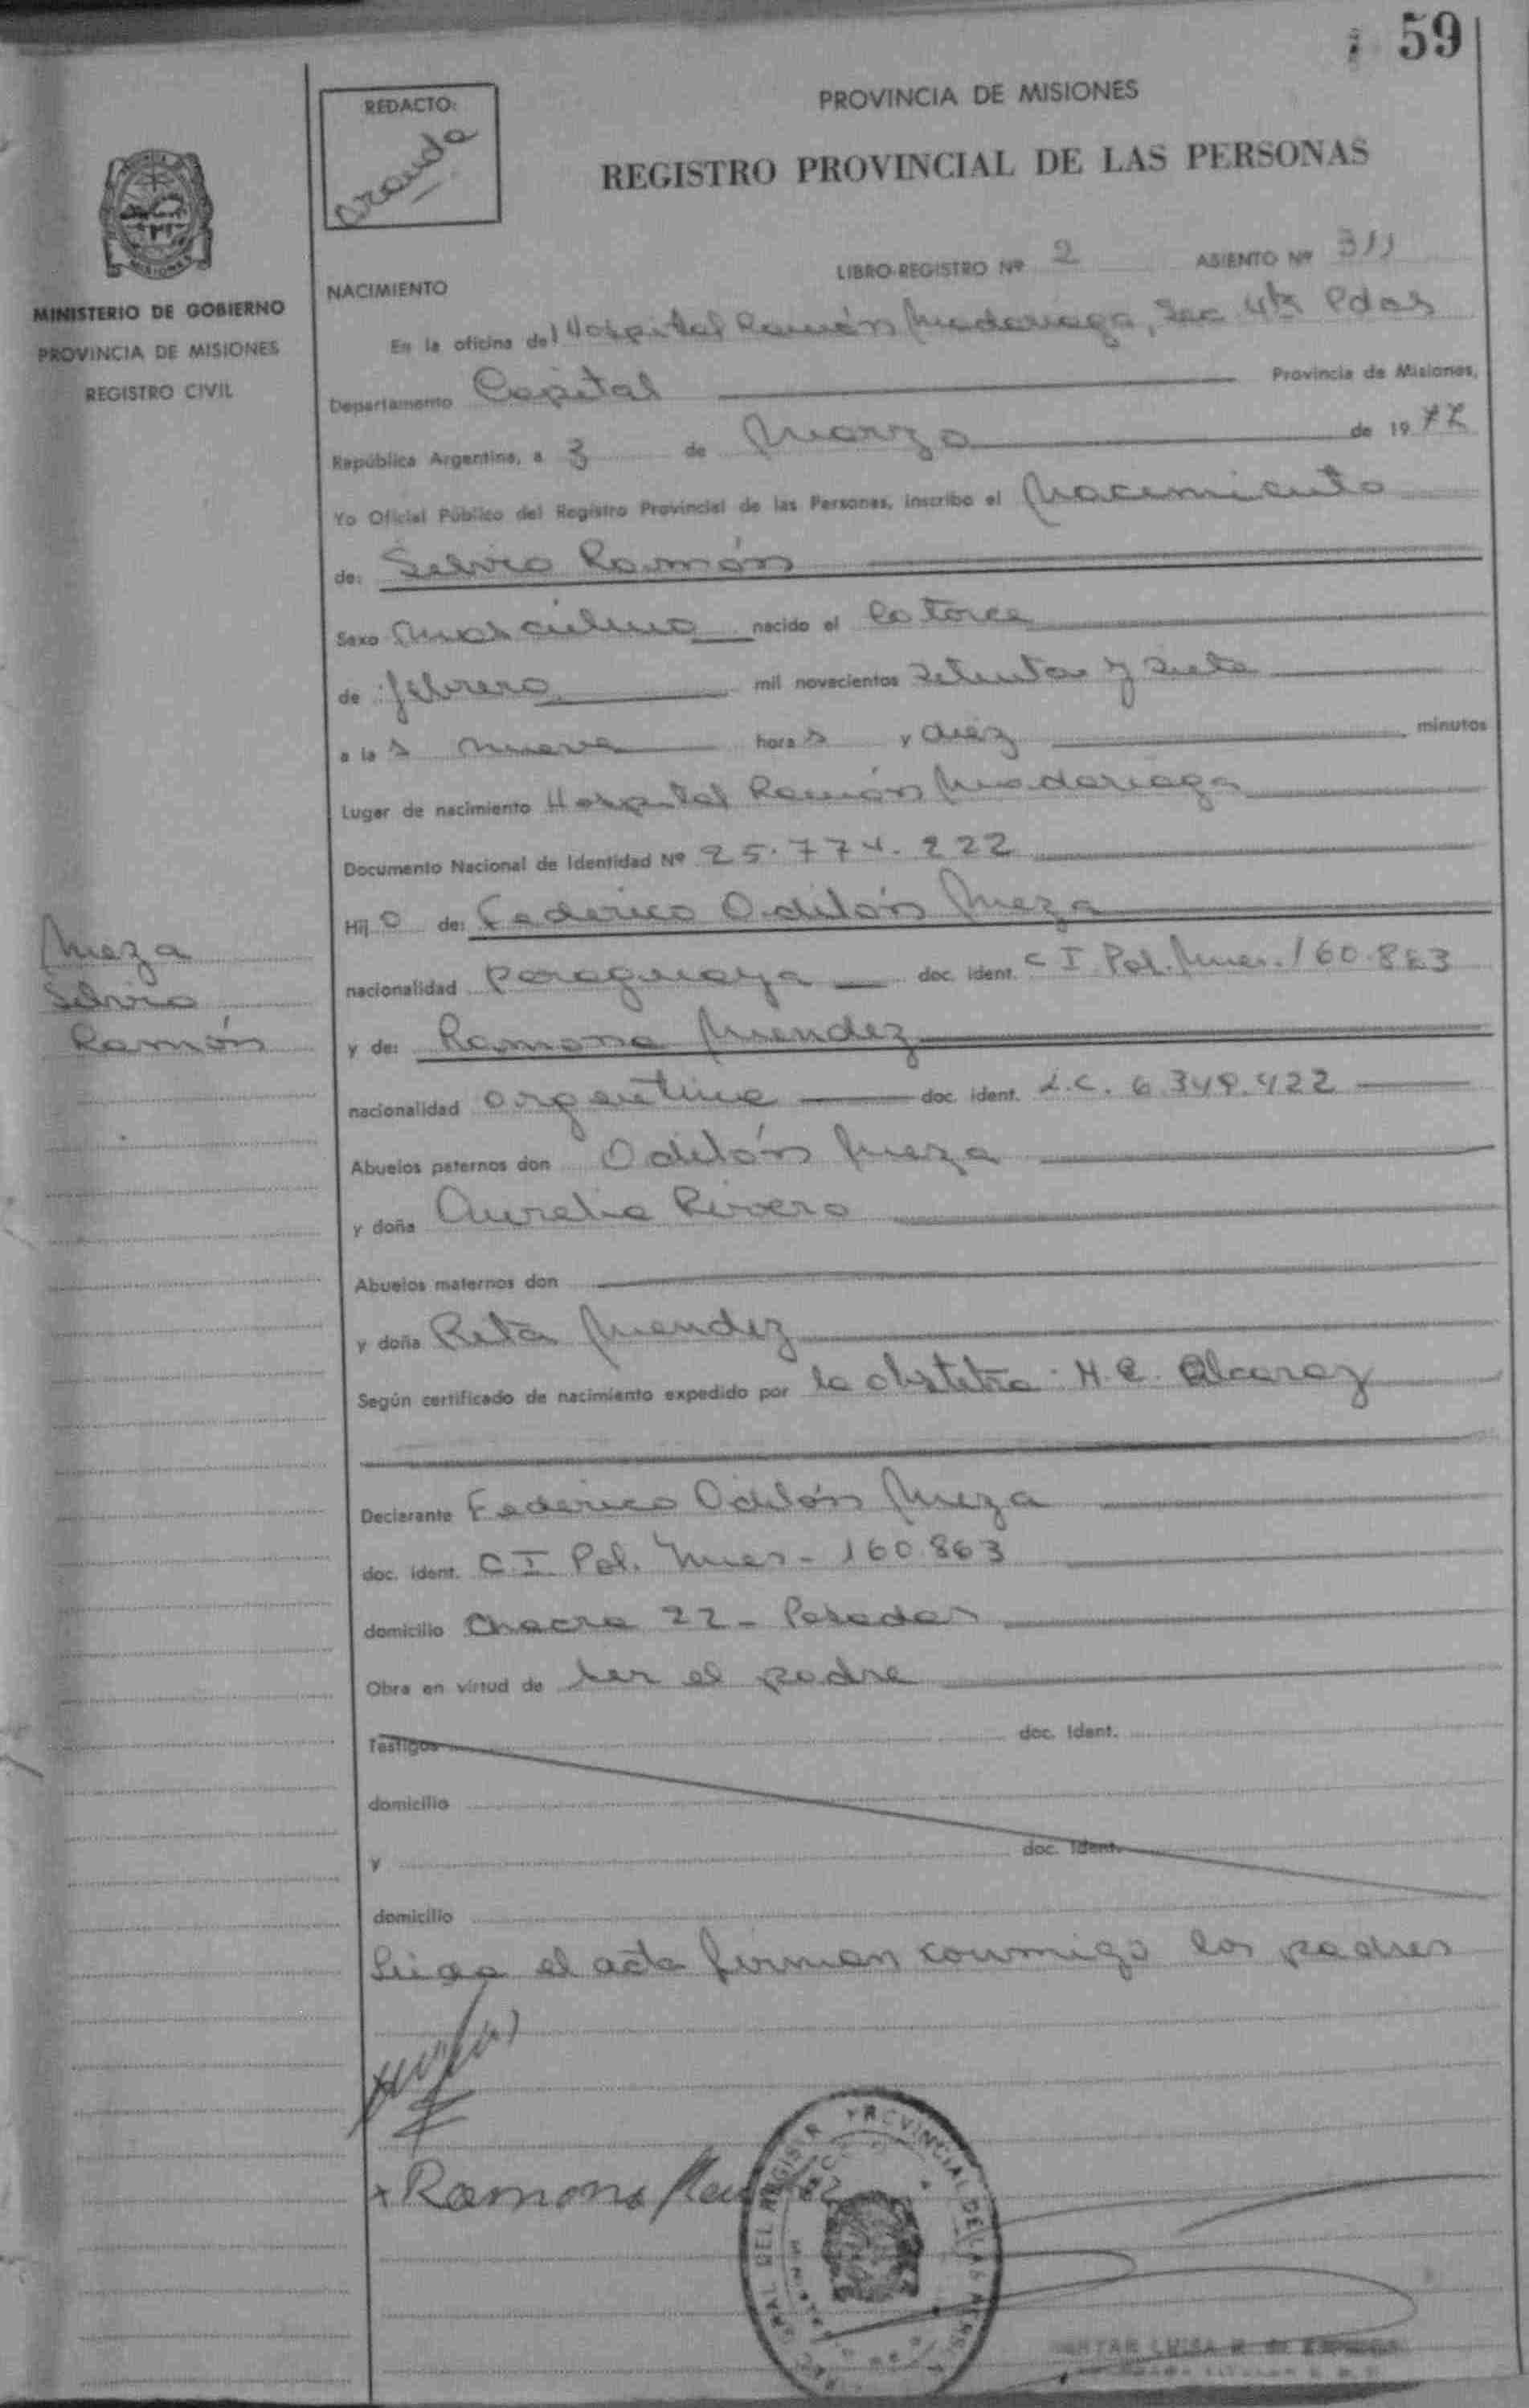 59
PROVINCIA DE MISIONES
REDACTO:
Aranda
REGISTRO PROVINCIAL DE LAS PERSONAS
MISIONES
MINISTERIO DE GOBIERNO
PROVINCIA DE MISIONES
REGISTRO CIVIL
LIBRO-REGISTRO Nº 2 ASIENTO Nº 311
NACIMIENTO
En la oficina del Hospital Ramón Madariaga, Sec 4ta Pdas
Departamento Capital Provincia de Misiones,
República Argentina, a 3 de Marzo de 1977
Yo Oficial Público del Registro Provincial de las Personas, inscribo el Nacimiento
de: Silvio Ramón
Sexo Masculino nacido el catorce
de febrero mil novecientos setenta y siete
a las nueve horas y diez minutos
Lugar de nacimiento Hospital Ramón Madariaga
Documento Nacional de Identidad Nº 25.774.222
Hijo de: Federico Odilón Meza
nacionalidad paraguaya doc. ident. C I Pol. Mnes. 160.863
y de: Ramona Mendez
nacionalidad argentina doc. ident. L.C. 6.349.422
Abuelos paternos don Odilón Meza
y doña Aurelia Rivero
Abuelos maternos don
y doña Rita Mendez
Según certificado de nacimiento expedido por la obstetra H. E. Alcaraz
Declarante Federico Odilón Meza
doc. ident. C.I. Pol. Mnes - 160.863
domicilio Chacra 22 - Posadas
Obra en virtud de ser el padre
Testigos doc. ident.
domicilio
y doc. ident.
domicilio
el acta firman conmigo los padres
Meza
Silvio
Ramón
x Ramona Mendez
GRAL DEL REGISTR PROVINCIAL DE LAS PERS